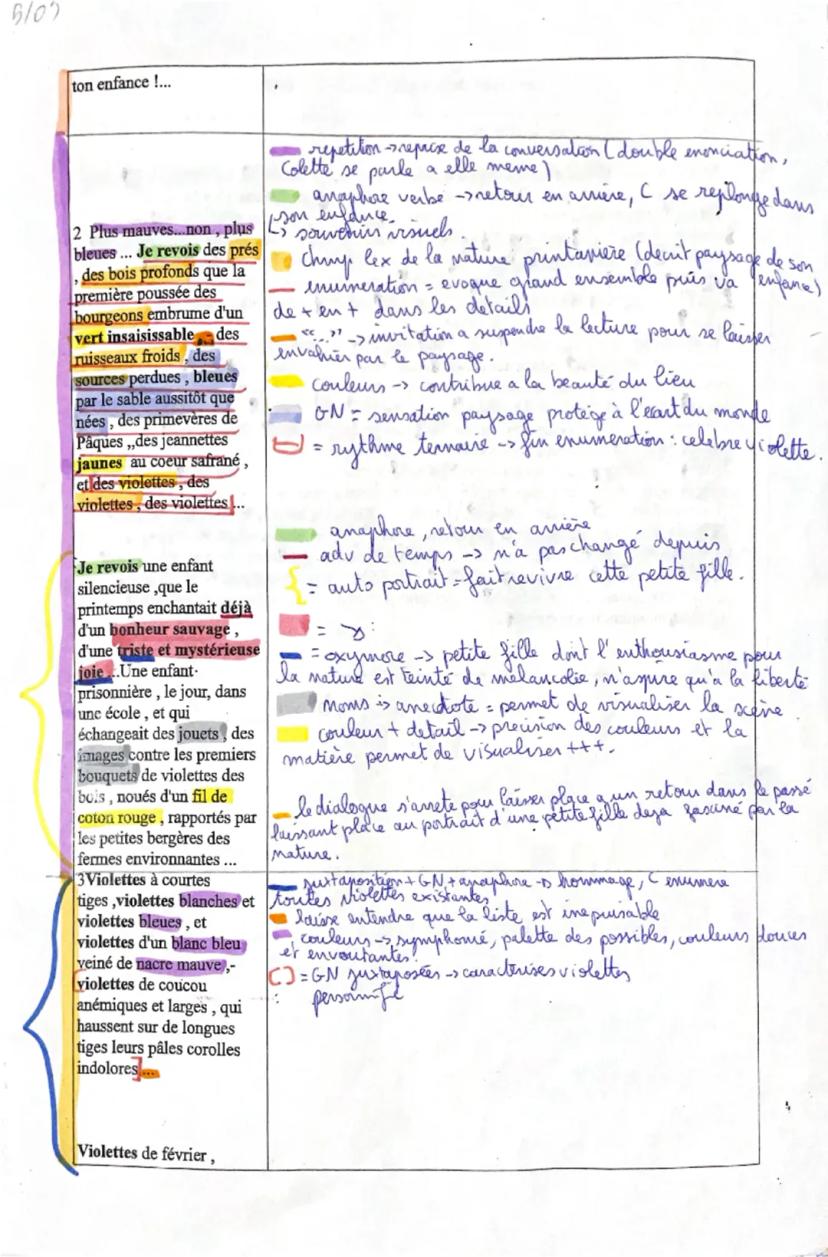 5/09
ton enfance !...
2 Plus mauves...non , plus
bleues ... Je revois des prés
, des bois profonds que la
première poussée des
bourgeons embrume d'un
vert insaisissable , des
ruisseaux froids , des
sources perdues , bleues
par le sable aussitôt que
nées , des primevères de
Pâques ,,des jeannettes
jaunes au coeur safrané ,
et des violettes , des
violettes , des violettes ...
répétition → reprise de la conversation ( double enonciation,
Colette se parle a elle meme )
anaphore verbe → retour en arrière, C se replonge dans
son enfance.
↳ souvenirs visuels.
Chmp lex de la nature printanière (decrit paysage de son
enfance)
enumeration = evoque grand ensemble puis va
de + en + dans les détails
"..." → invitation a suspendre la lecture pour se laisser
envahir par le paysage.
couleurs → contribue a la beauté du lieu
GN = sensation paysage protégé à l'écart du monde
= rythme ternaire → fin enumeration : celebre violette.
Je revois une enfant
silencieuse ,que le
printemps enchantait déjà
d'un bonheur sauvage ,
d'une triste et mystérieuse
joie ...Une enfant
prisonnière , le jour, dans
une école , et qui
échangeait des jouets , des
images contre les premiers
bouquets de violettes des
bois , noués d'un fil de
coton rouge , rapportés par
les petites bergères des
fermes environnantes ...
anaphore, retour en arrière
adv de temps → n'a pas changé depuis
{ = auto portrait = fait revivre cette petite fille.
= ↘ :
= oxymore → petite fille dont l'enthousiasme pour
la nature est teinté de mélancolie, n'aspire qu'a la liberté
noms → anecdote = permet de visualiser la scène
couleur + detail → precision des couleurs et la
matière permet de visualiser +++.
le dialogue s'arrete pour laisser place a un retour dans le passé
laissant place au portrait d'une petite fille deja fasciné par la
nature.
3Violettes à courtes
tiges ,violettes blanches et
violettes bleues , et
violettes d'un blanc bleu
veiné de nacre mauve ,-
violettes de coucou
anémiques et larges , qui
haussent sur de longues
tiges leurs pâles corolles
indolores...
Violettes de février ,
juxtaposition + GN + anaphore → hommage, C enumere
toutes violettes existantes
laisse entendre que la liste est inepuisable
couleurs → symphonie, palette des possibles, couleurs douces
et envoutantes.
[ ] = GN juxtaposées → caracterises violettes
: personnif